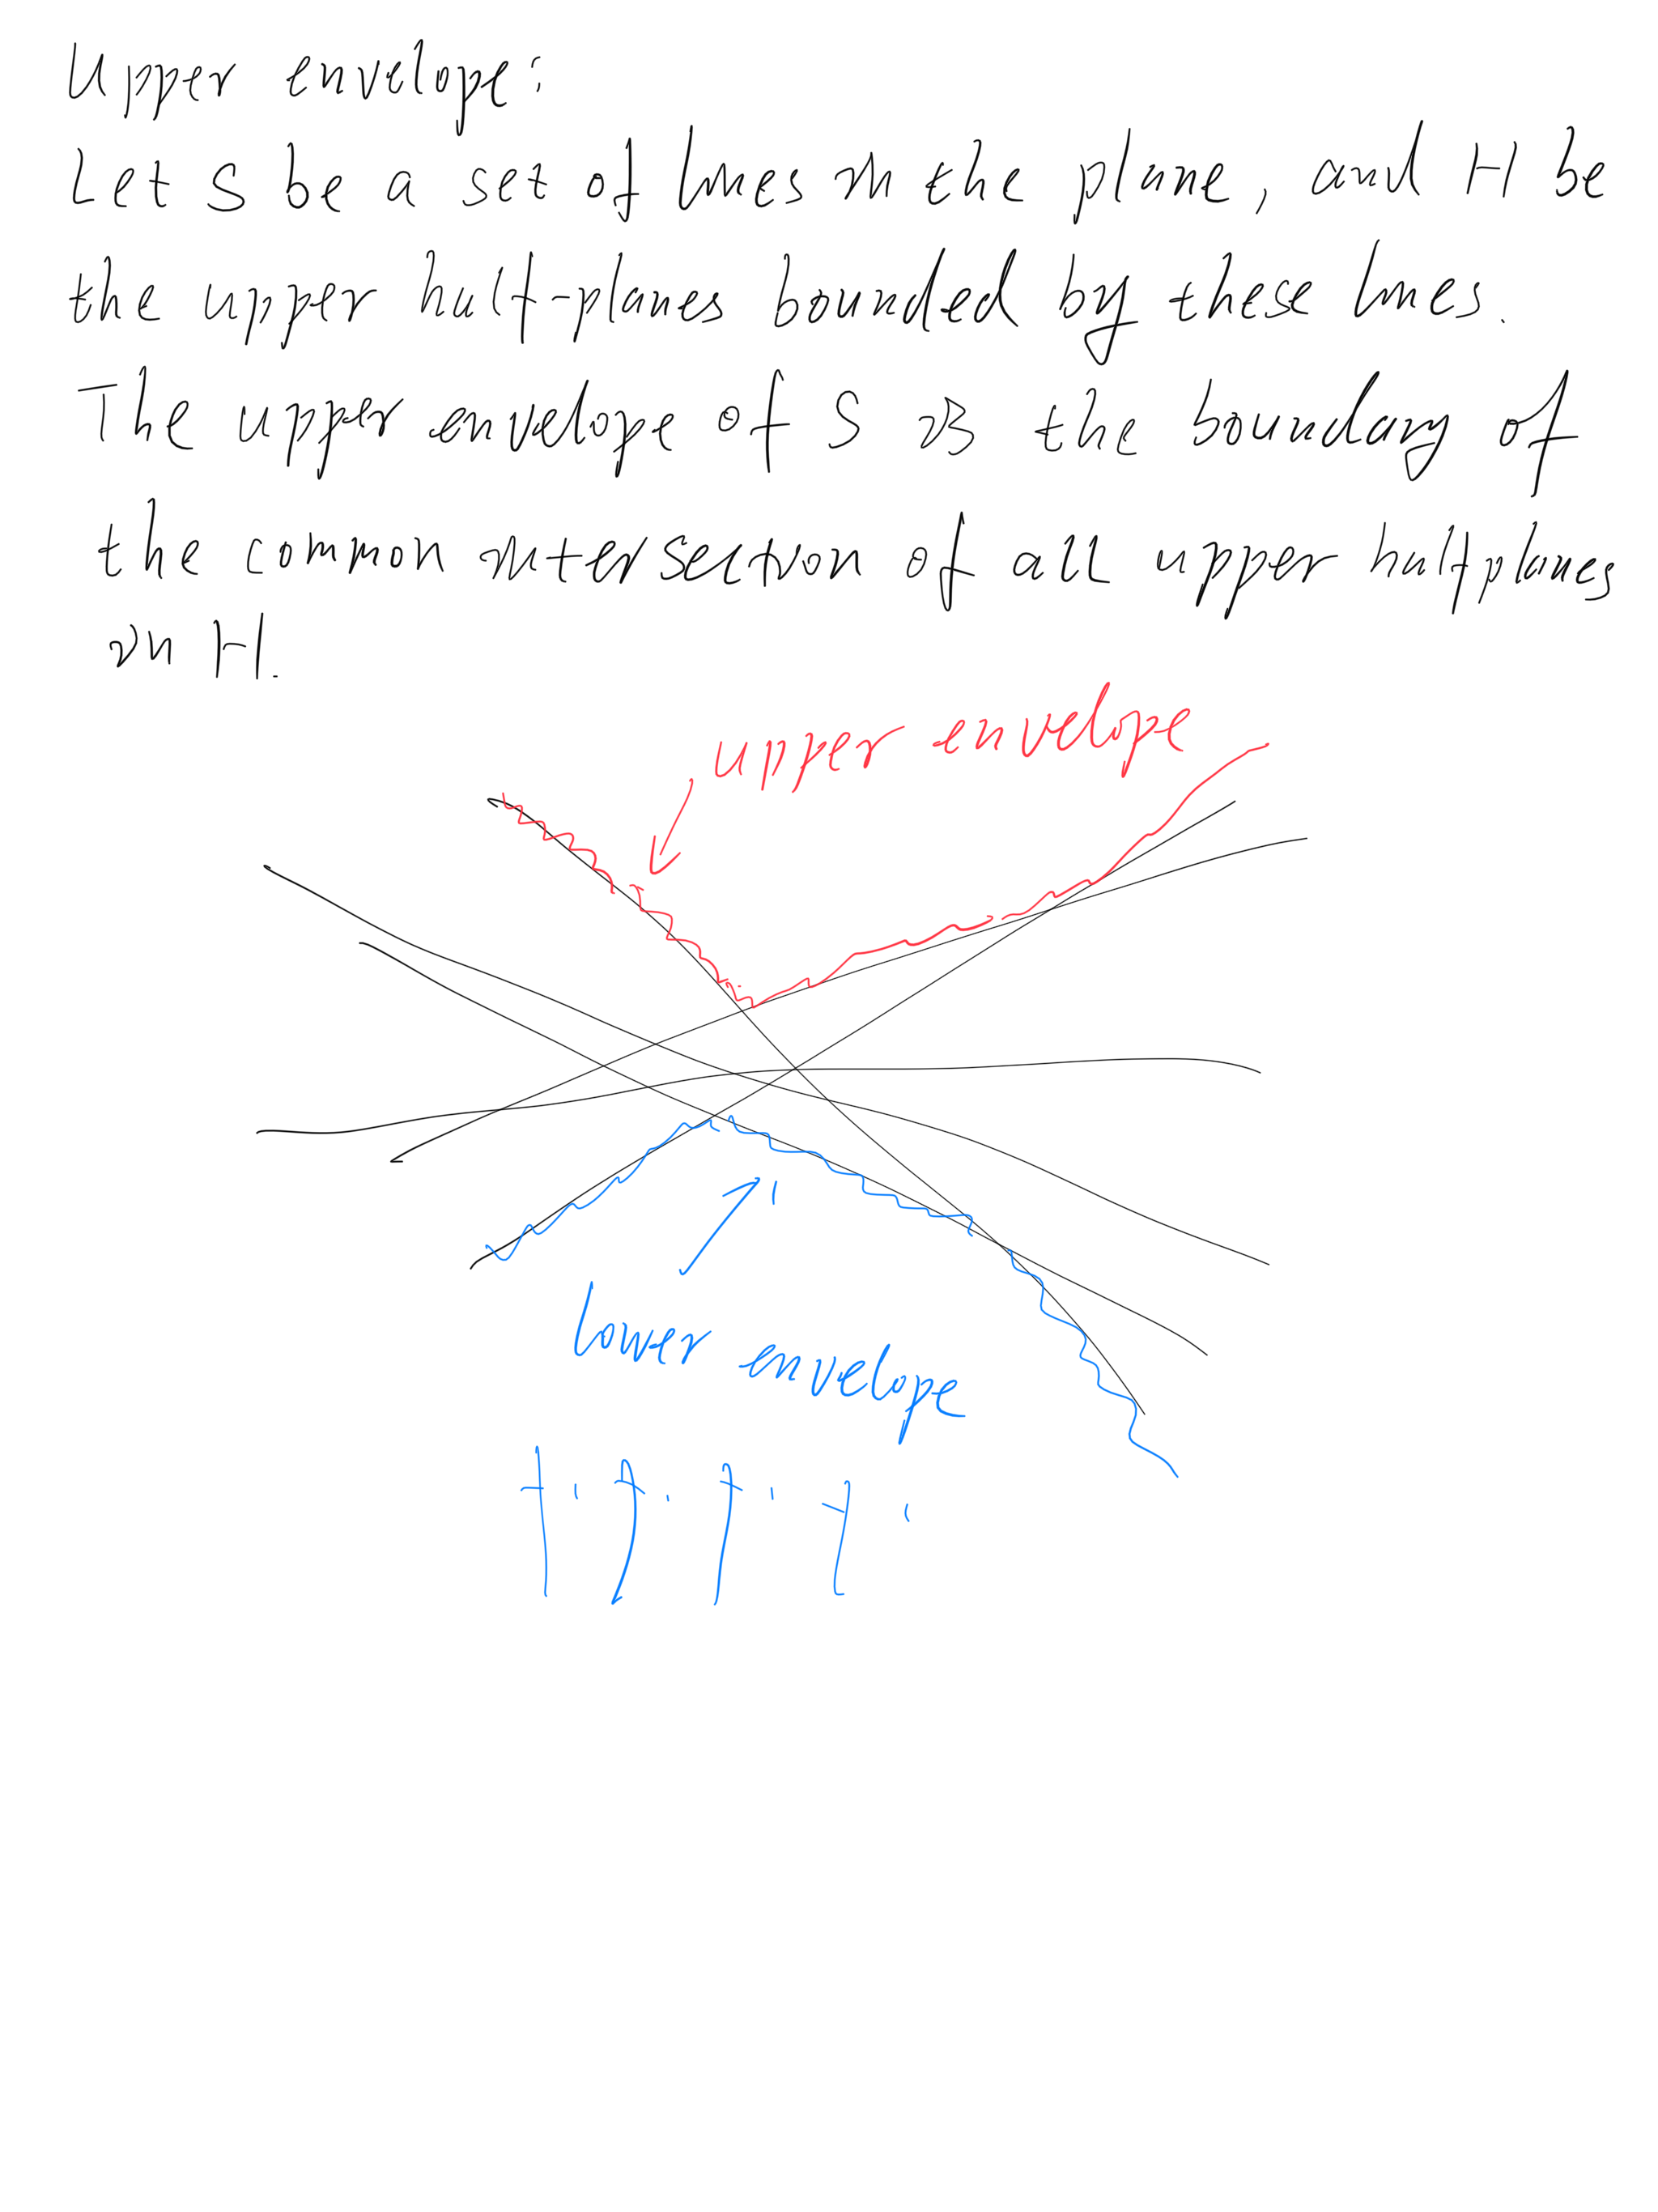 Upper envelope:
Let S be a set of lines in the plane, and H be
the upper half-planes bounded by these lines.
The upper envelope of S is the boundary of
the common intersection of all upper halfplanes
in H.
upper envelope
lower envelope